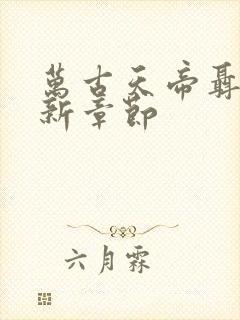 萬古天帝聶
新章節
六月霖